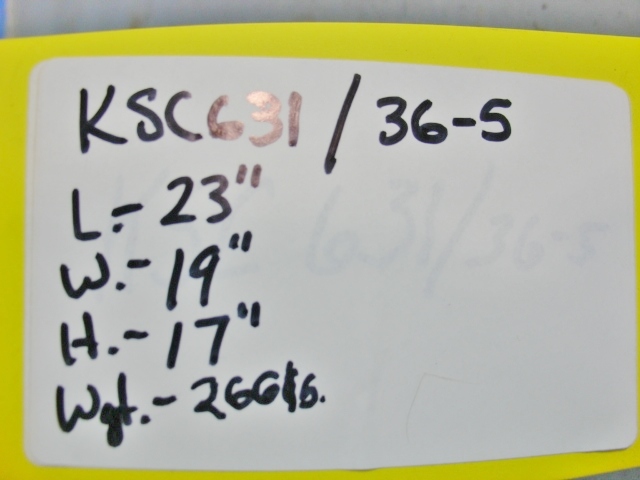 KSC631 / 36-5
L.- 23"
W.- 19"
H.- 17"
Wgt.- 266lbs.